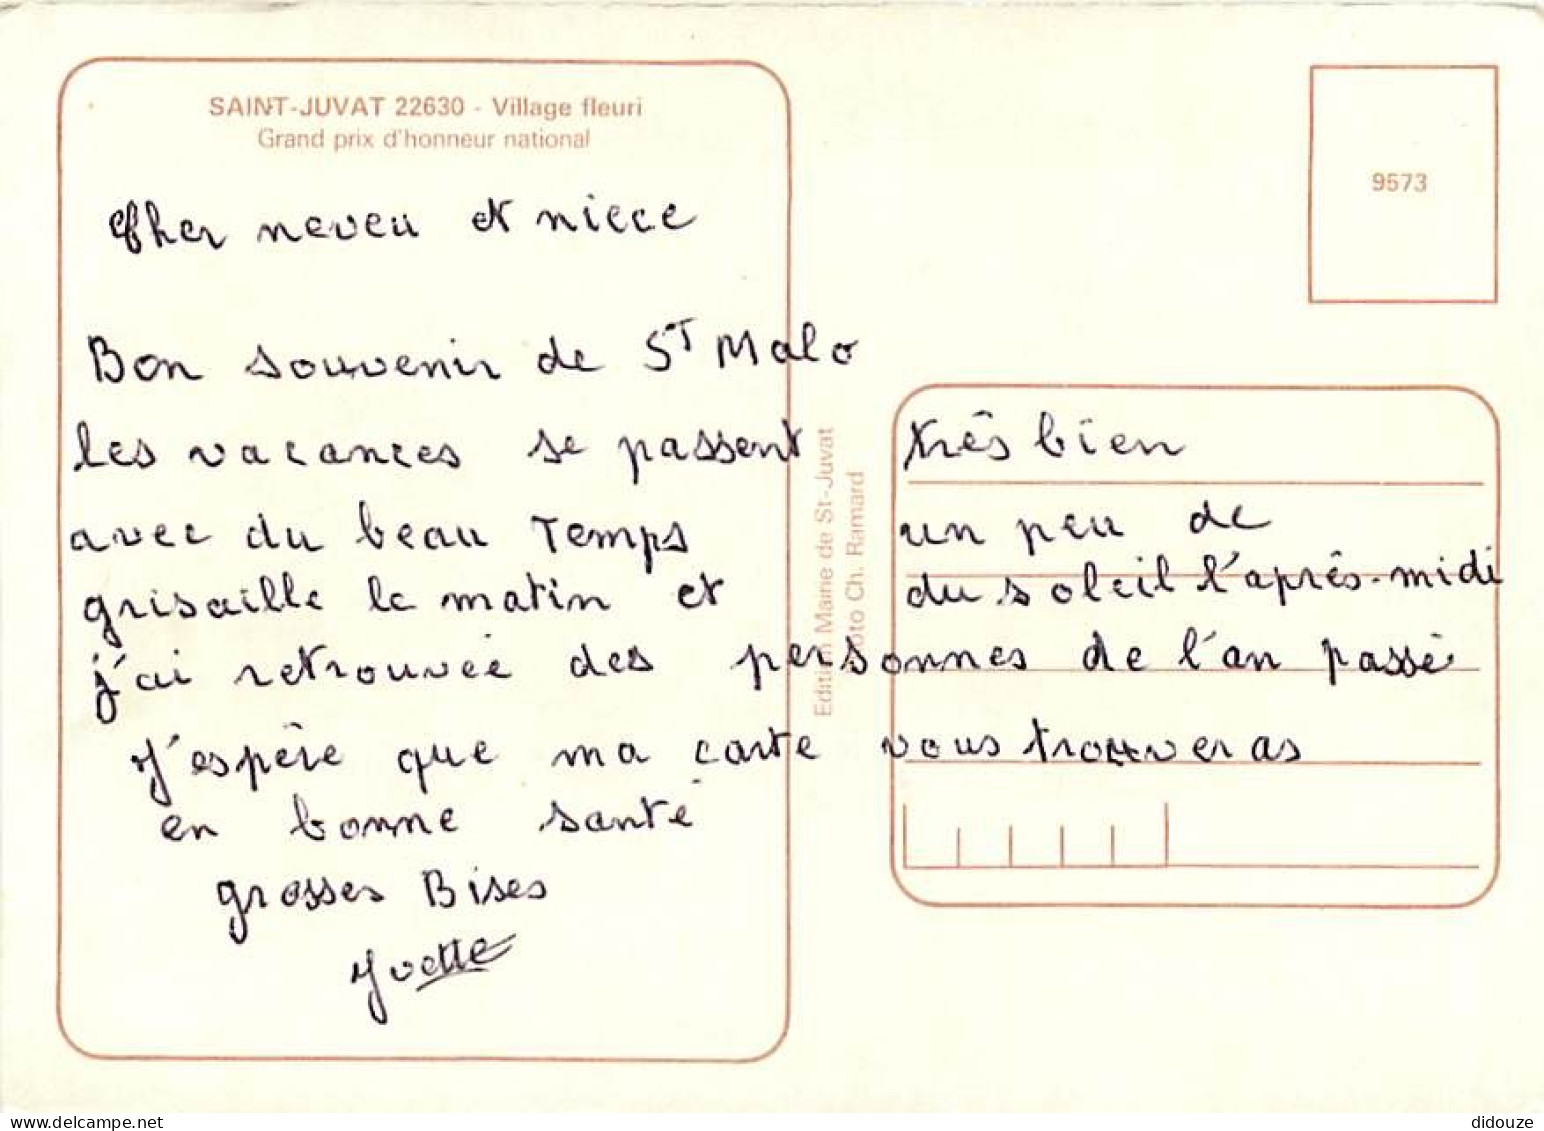 SAINT-JUVAT 22630 - Village fleuri
Grand prix d'honneur national
9573
Cher neveu et niece
Bon souvenir de ST Malo
les vacances se passent très bien
avec du beau Temps un peu de
grisaille le matin et du soleil l'après-midi
j'ai retrouvée des personnes de l'an passé
J'espère que ma carte vous trouveras
en bonne santé
grosses Bises
Yvette
Edition Mairie de St-Juvat
Photo Ch. Ramard
didouze